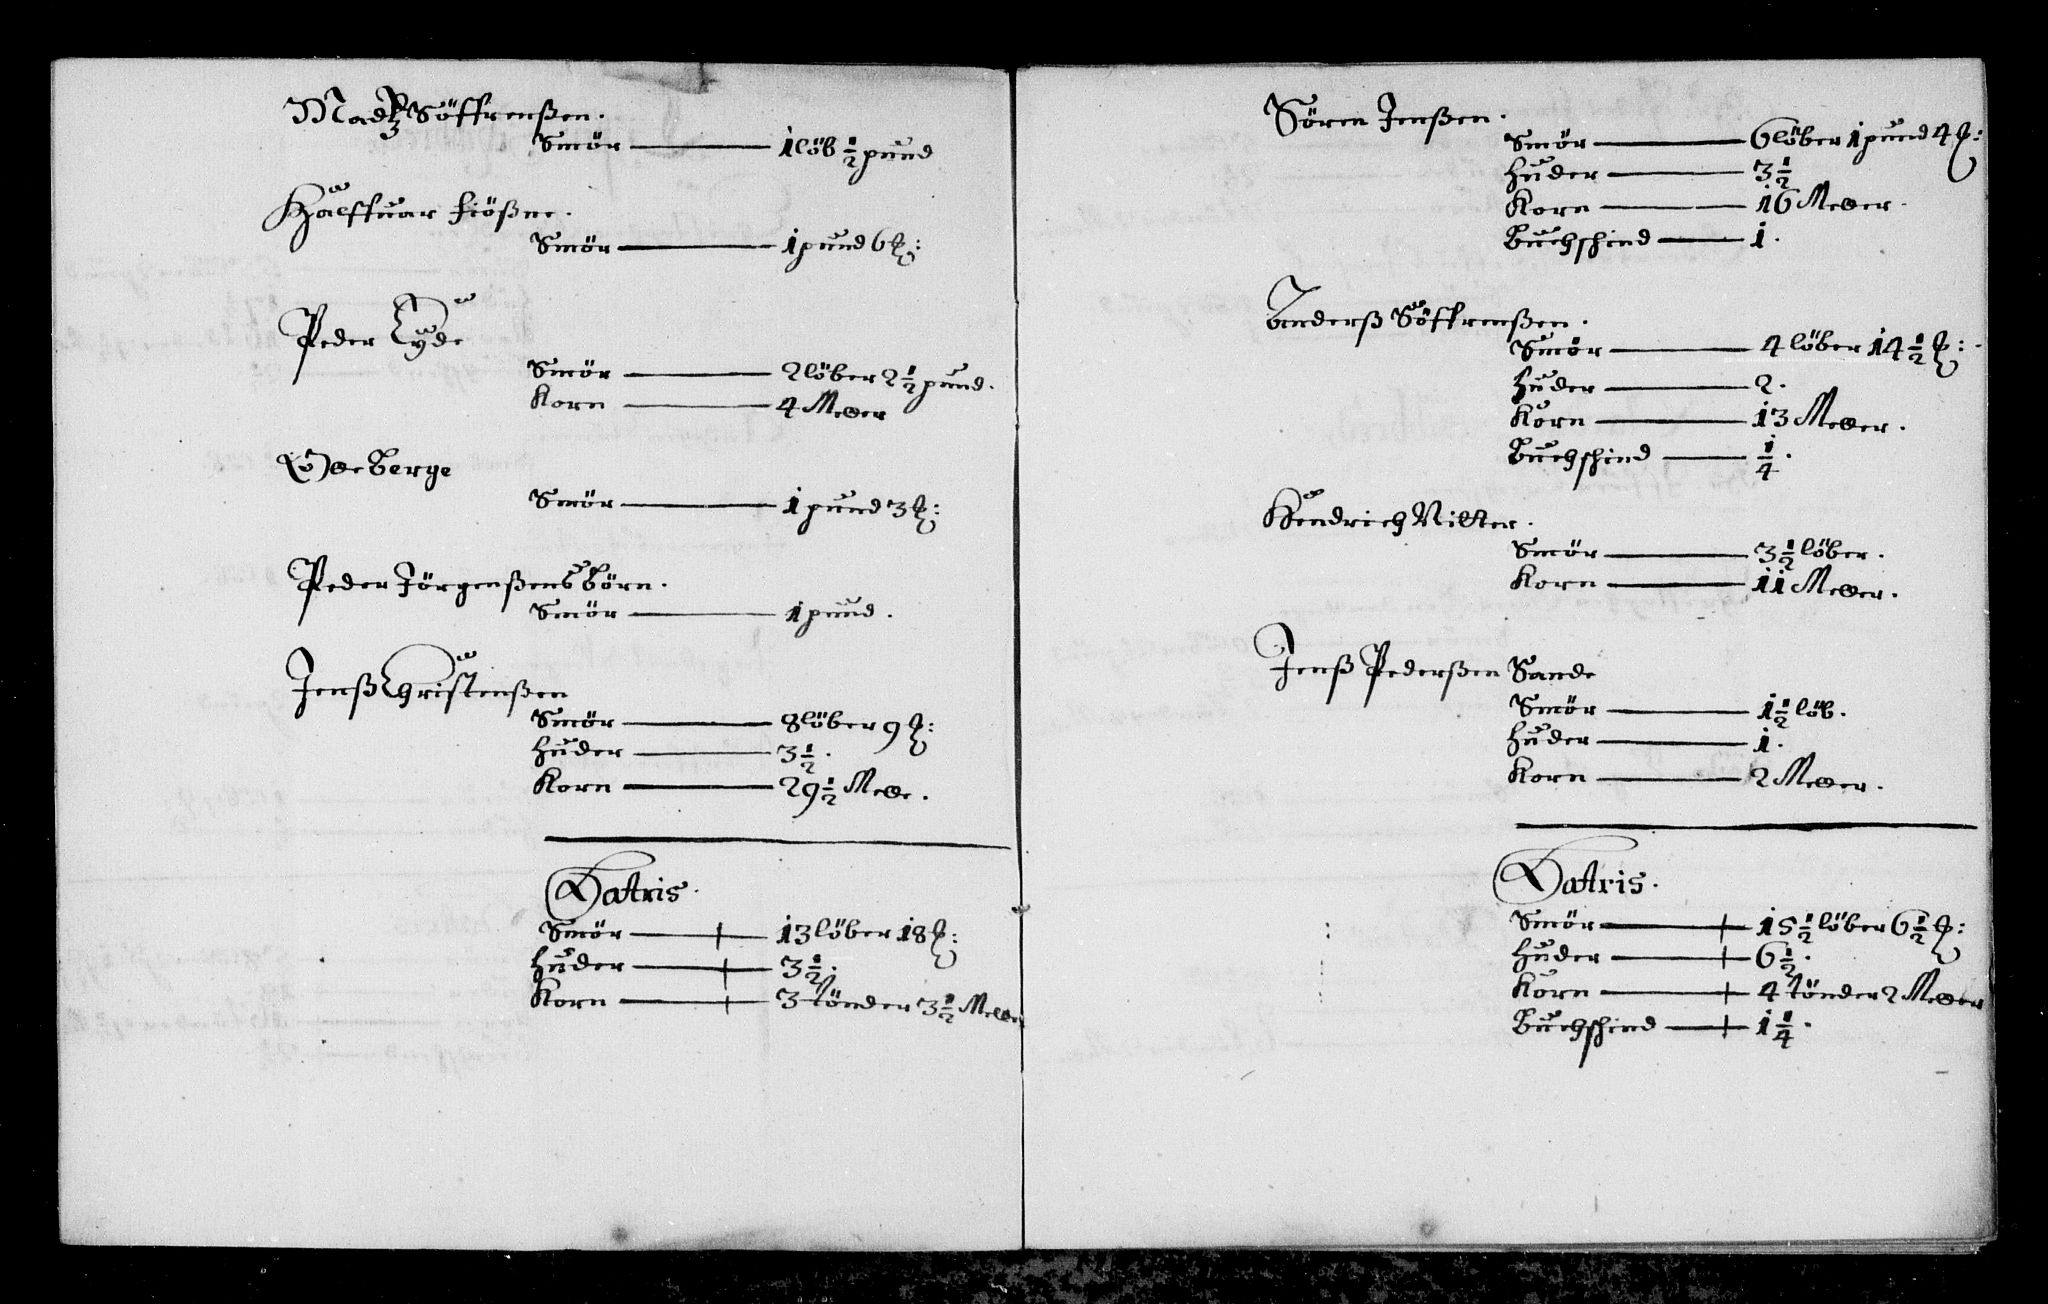 Madz Söffrenßen.
Smör — 1 löb ½ pund
Halffuar Fiößne.
Smör — 1 pund 6 ℔:
Peder Lyde
Smör — 2 löber 2½ pund.
Korn — 4 Meller
Berge
Smör — 1 pund 3 ℔:
Peder Jörgenßens Börn.
Smör — 1 pund.
Jenß Christenßen
Smör — 8 löber 9 ℔:
Huder — 3½.
Korn — 29½ Melle.
Latris.
Smör — 13 löber 18 ℔:
Huder — 3½.
Korn — 3 tönder 3½ Meller
Sören Jenßen.
Smör — 6 löber 1 pund 4 ℔:
Huder — 3½
Korn — 16 Meller.
Buchschind — 1.
Anderß Söffrenßen.
Smör — 4 löber 14½ ℔:
Huder — 2.
Korn — 13 Meller.
Buchschind — ¼.
Hendrich Ritter.
Smör — 3½ löber.
Korn — 11 Meller.
Jenß Pederßen Sande
Smör — 1½ löb.
Huder — 1.
Korn — 2 Meller.
Latris.
Smör — 15½ löber 6½ ℔:
Huder — 6½.
Korn — 4 tönder 2 Meller
Buchschind — 1¼.